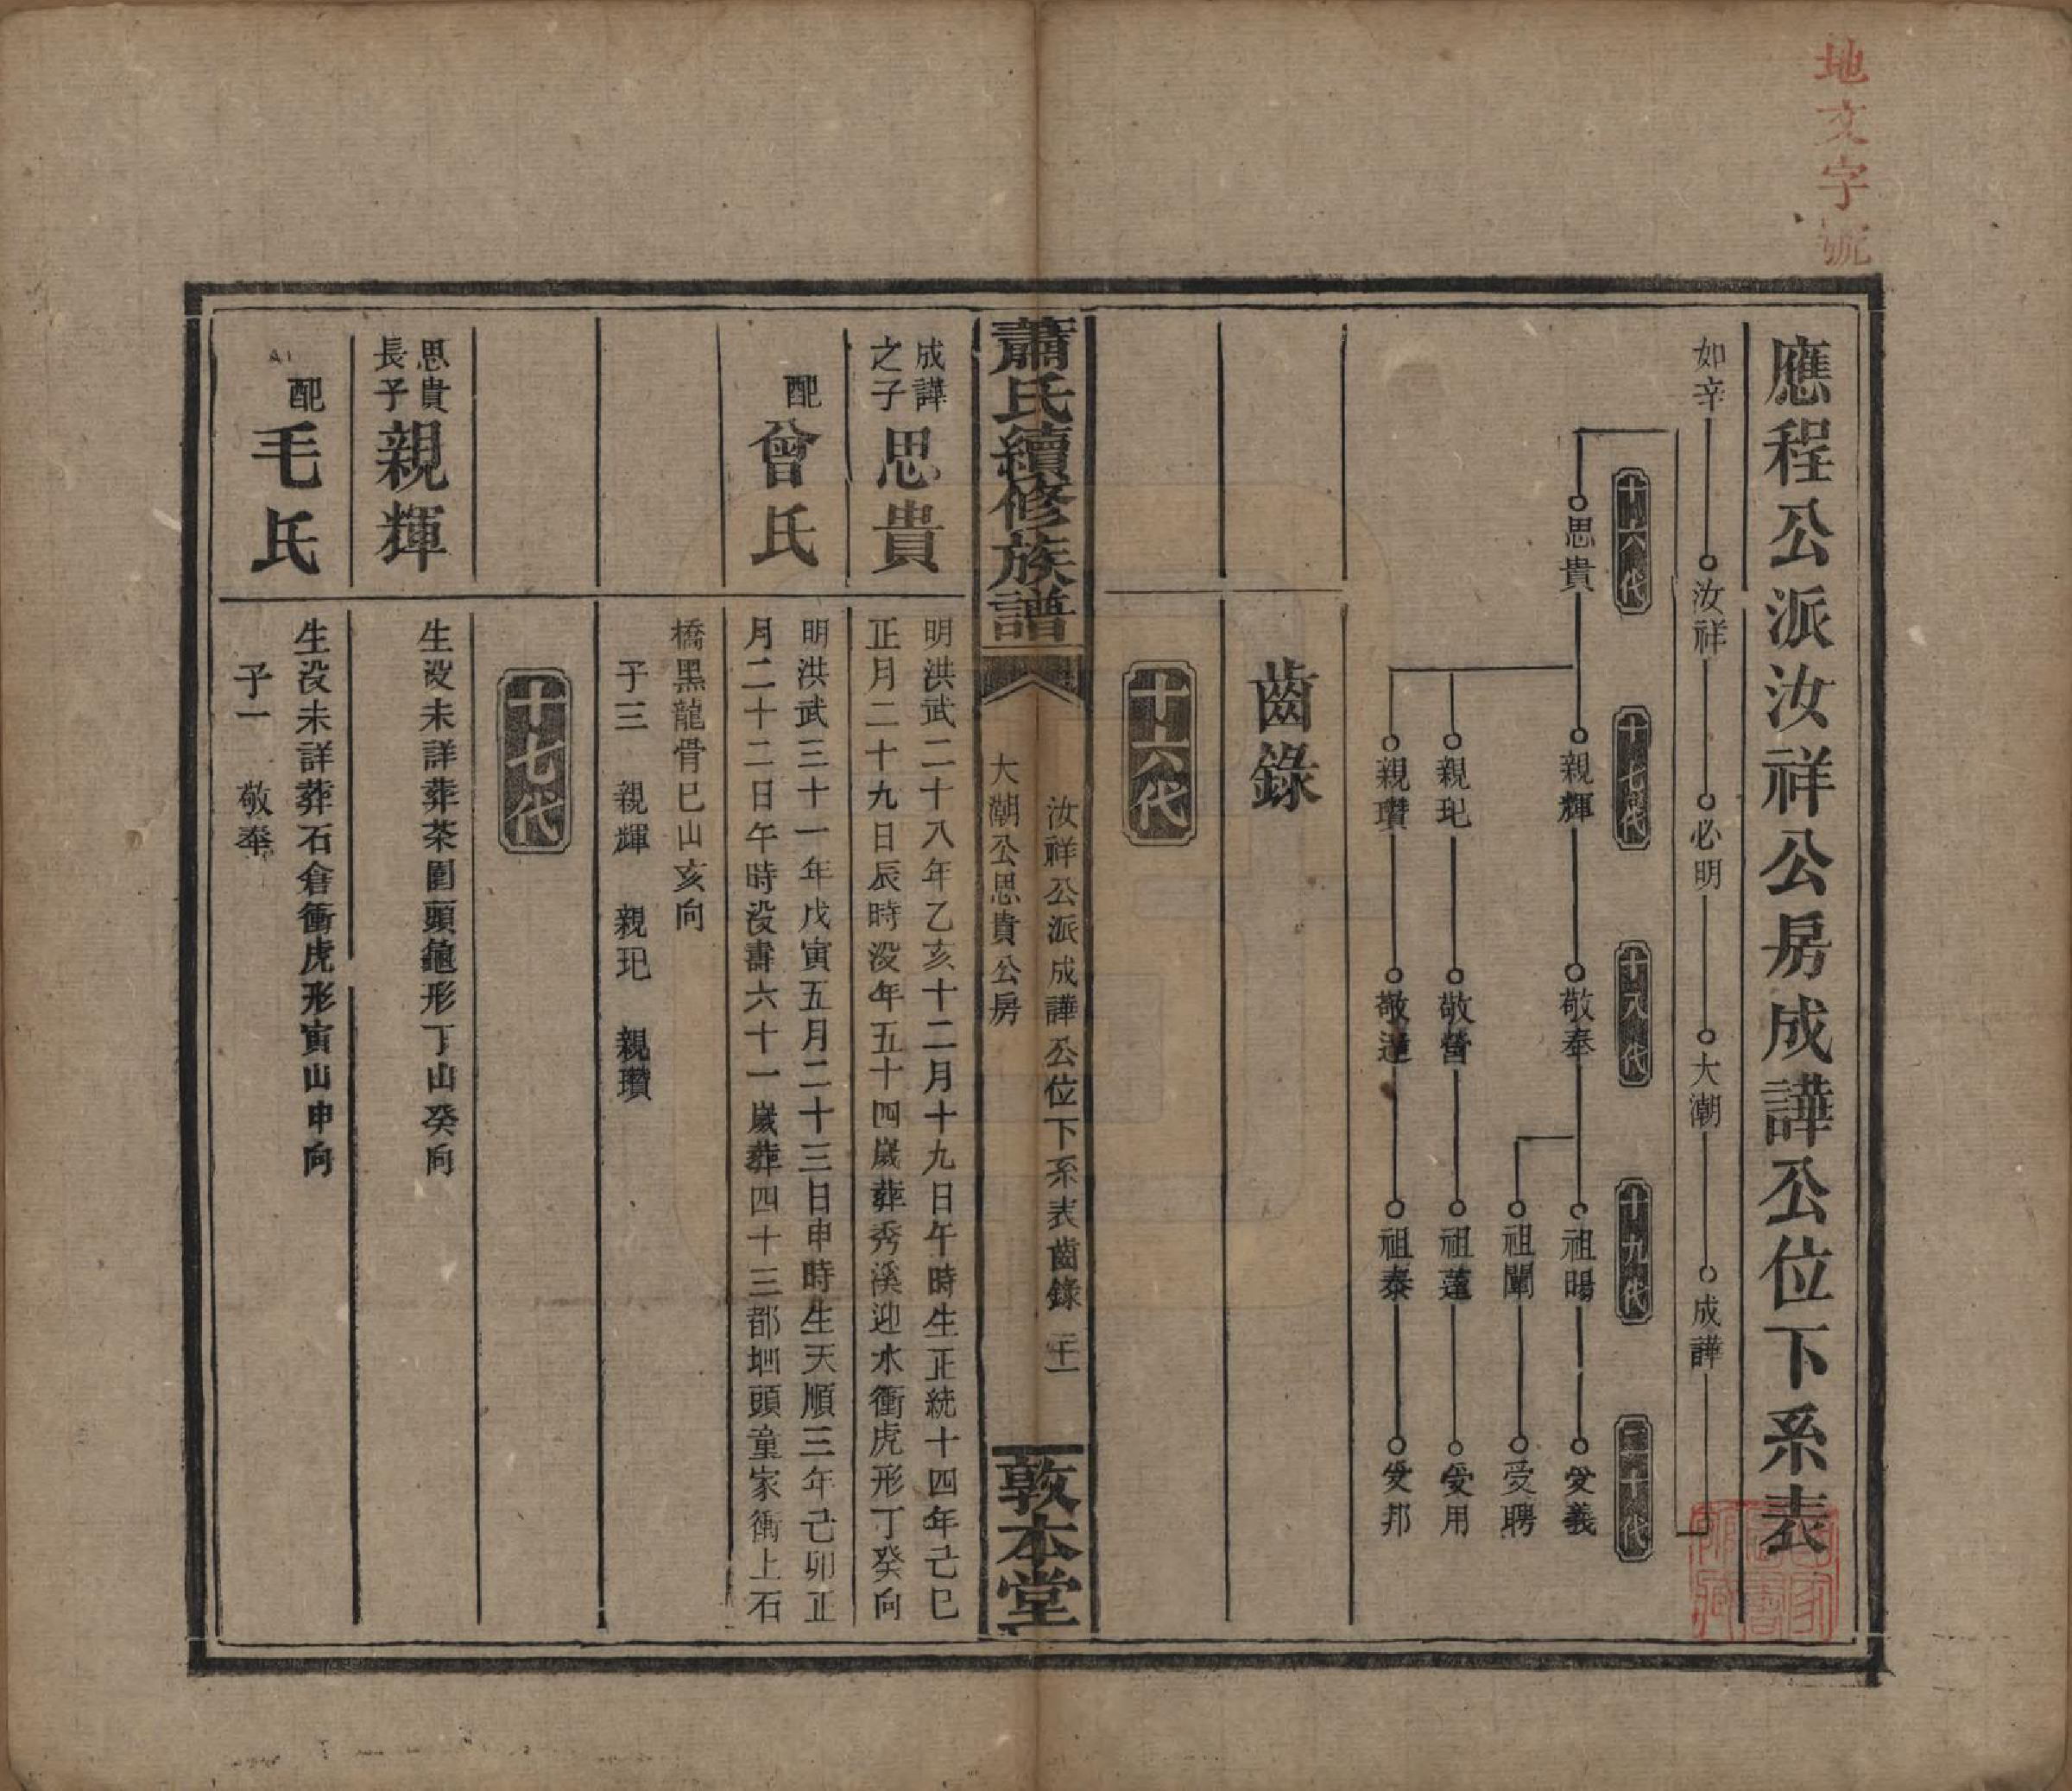 地文字號
應程公派汝祥公房成譁公位下系表
如辛 汝祥 必明 大潮 成譁
十六代 十七代 十八代 十九代 二十代
思貴 親輝 敬奉 祖暘 受義
祖闡 受聘
親玘 敬營 祖蓮 受用
親瓚 敬蓮 祖泰 受邦
齒錄
十六代
蕭氏續修族譜
汝祥公派成譁公位下系表齒錄 二十一
大潮公思貴公房
敦本堂
成譁之子思貴
明洪武二十八年乙亥十二月十九日午時生正統十四年己巳
正月二十九日辰時没年五十四歲葬秀溪迎水衝虎形丁癸向
配曾氏
明洪武三十一年戊寅五月二十三日申時生天順三年己卯正
月二十二日午時没壽六十一歲葬四十三都圳頭童家衝上石
橋黑龍骨巳山亥向
子三 親輝 親玘 親瓚
十七代
思貴長子親輝
生没未詳葬茶園頭龜形丁山癸向
配毛氏
生没未詳葬石倉衝虎形寅山申向
子一 敬奉